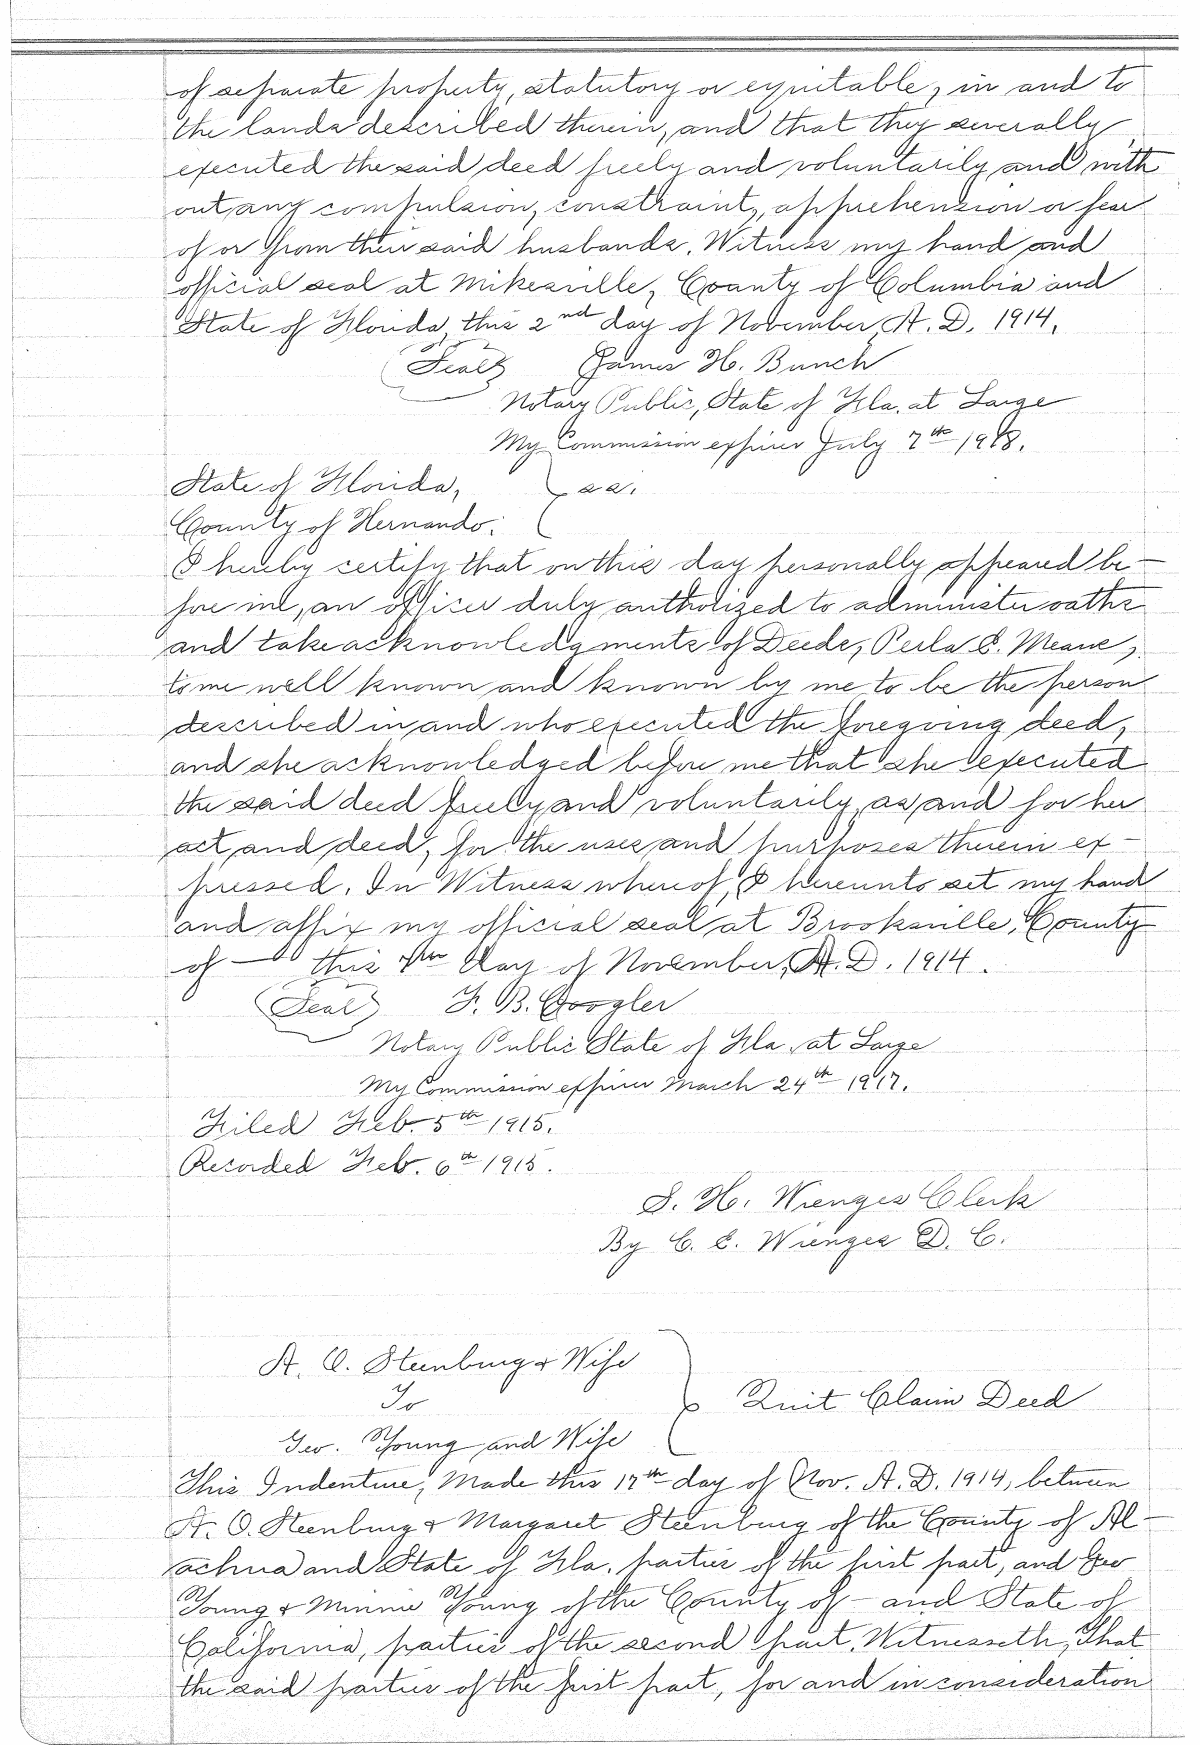 of separate property, statutory or equitable, in and to
the lands described therein, and that they severally
executed the said deed freely and voluntarily and with
out any compulsion, constraint, apprehension or fear
of or from their said husbands. Witness my hand and
official seal at Mikesville, County of Columbia and
State of Florida, this 2nd day of November, A. D. 1914.
(Seal) James H. Bunch
Notary Public, State of Fla. at Large
My Commission expires July 7th 1918.
State of Florida, } ss.
County of Hernando.
I hereby certify that on this day personally appeared be-
fore me, an officer duly authorized to administer oaths
and take acknowledgments of Deeds, Perla E. Means,
to me well known and known by me to be the person
described in and who executed the foregoing deed,
and she acknowledged before me that she executed
the said deed freely and voluntarily, as and for her
act and deed, for the uses and purposes therein ex-
pressed. In Witness whereof, I hereunto set my hand
and affix my official seal at Brooksville, County
of — this day of November, A. D. 1914.
(Seal) F. B. Coogler
Notary Public State of Fla. at Large
My Commission expires March 24th 1917.
Filed Feb. 5th 1915.
Recorded Feb. 6th 1915.
S. H. Wienges Clerk
By C. E. Wienges D. C.
A. O. Steenburg & Wife
To } Quit Claim Deed
Geo. Young and Wife
This Indenture, Made this 17th day of Nov. A. D. 1914, between
A. O. Steenburg & Margaret Steenburg of the County of Al-
achua and State of Fla. parties of the first part, and Geo
Young & Minnie Young of the County of — and State of
California, parties of the second part, Witnesseth, That
the said parties of the first part, for and in consideration